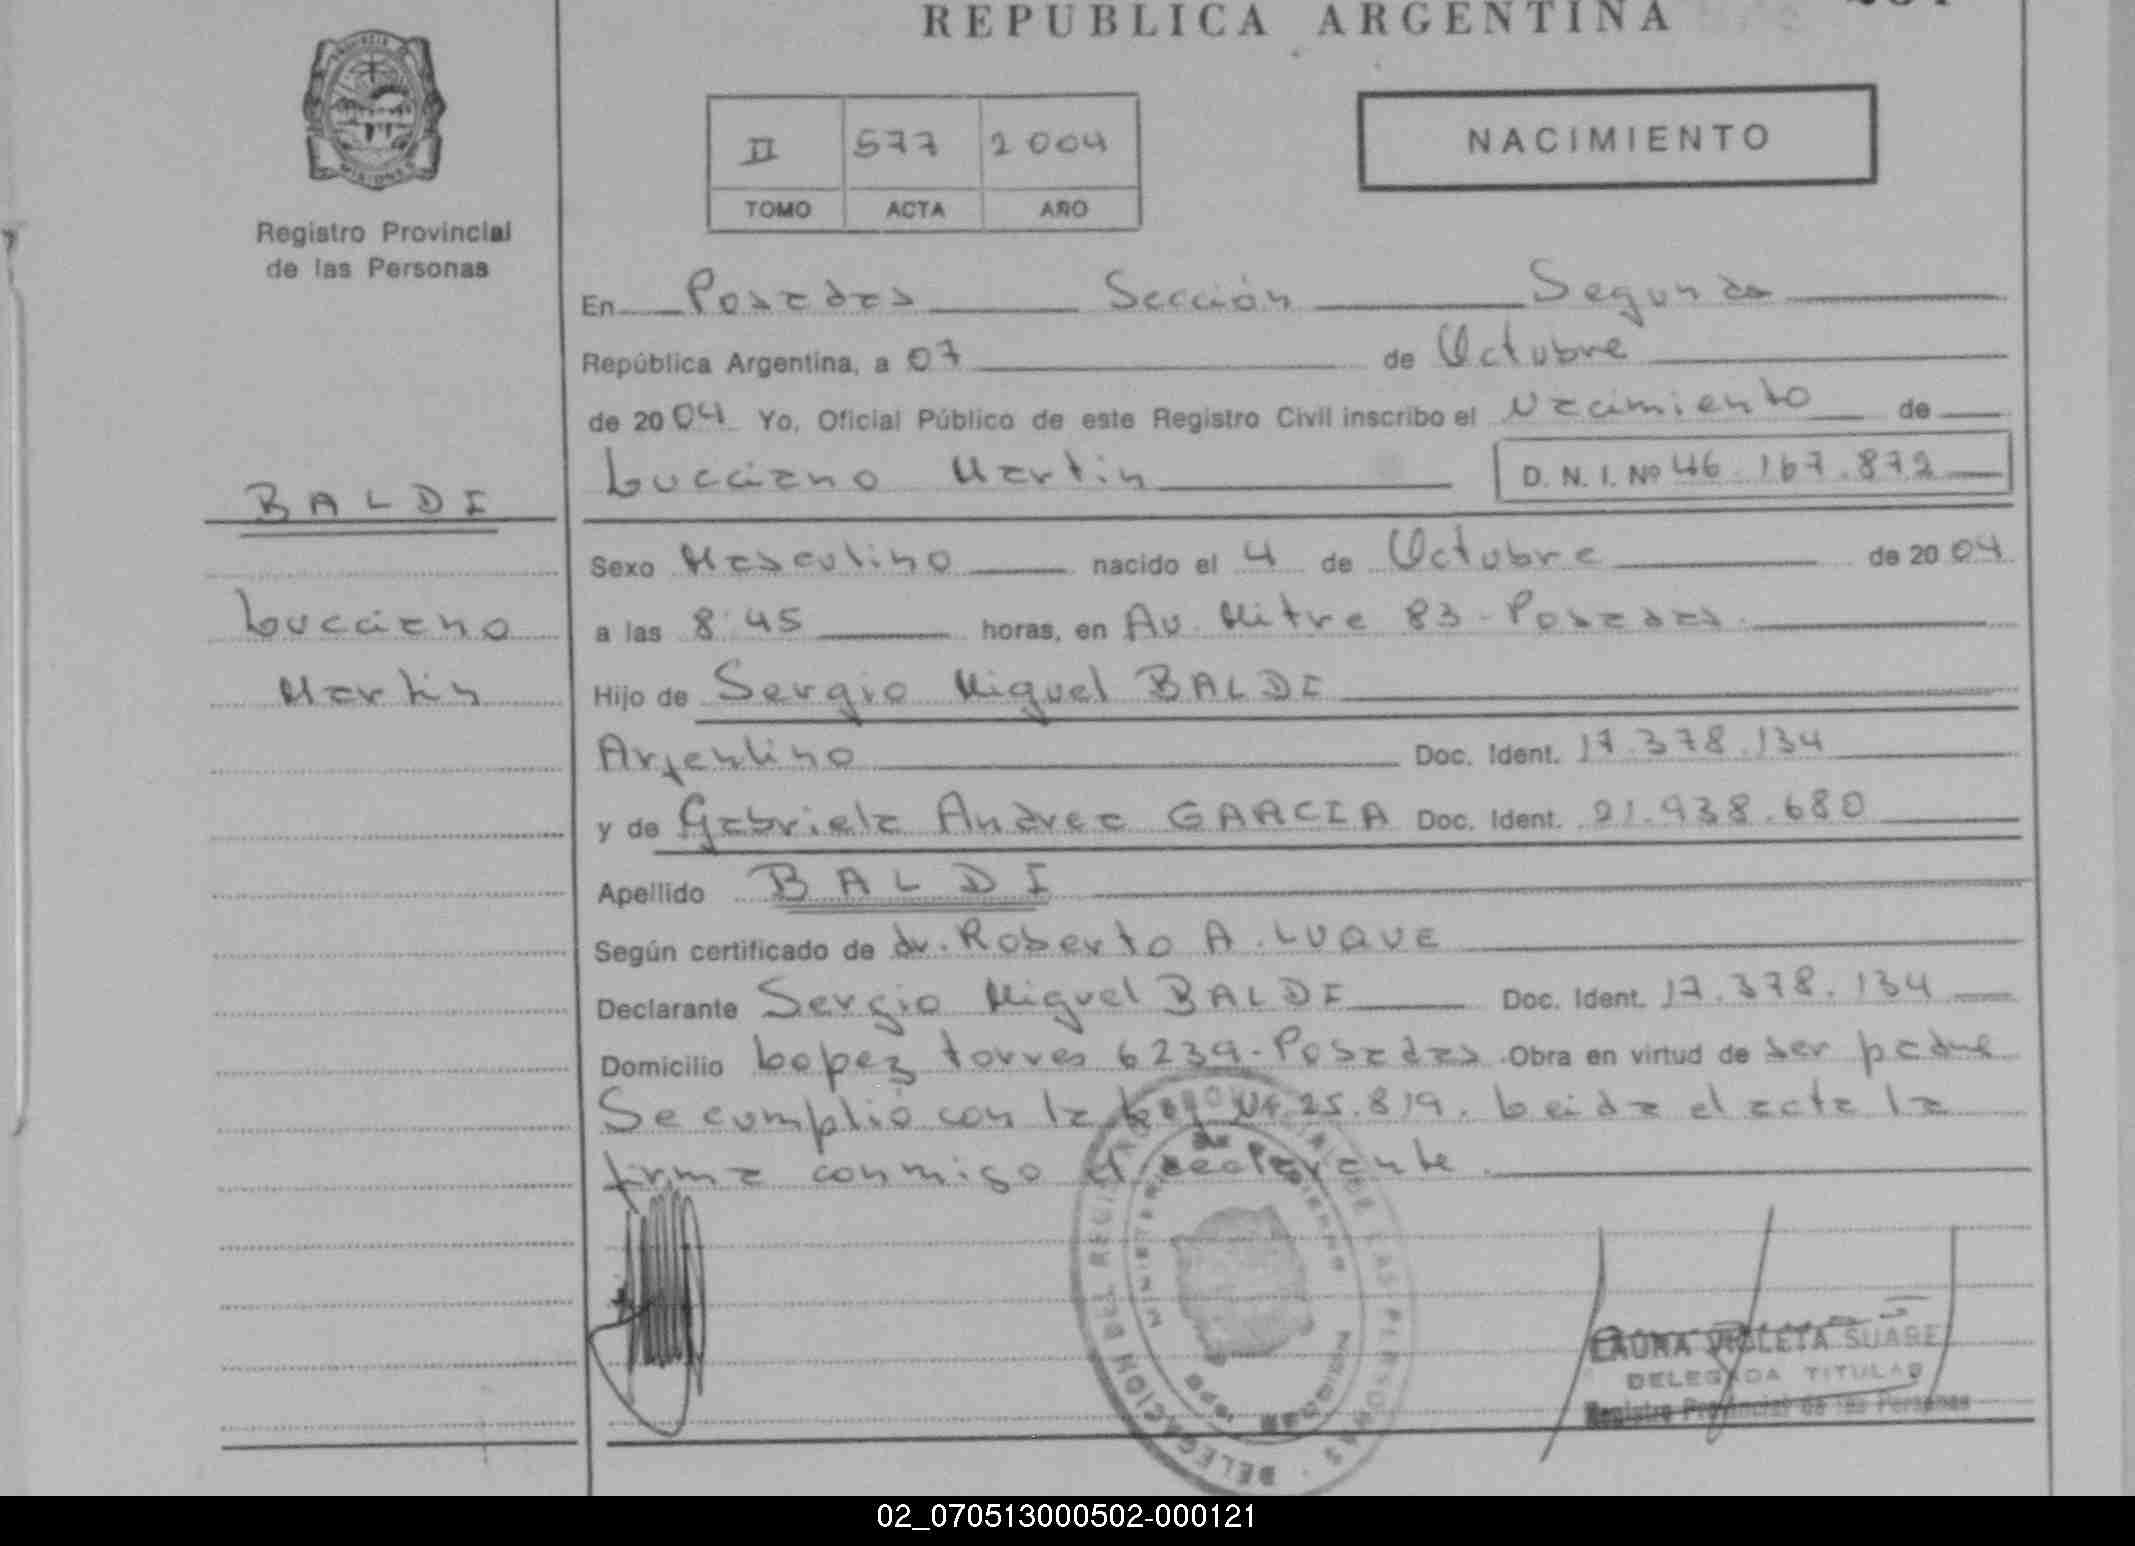 REPUBLICA ARGENTINA
PROVINCIA DE
MISIONES
Registro Provincial
de las Personas
II 577 2004
TOMO ACTA AÑO
NACIMIENTO
En Posadas Sección Segunda
República Argentina, a 07 de Octubre
de 2004 Yo, Oficial Público de este Registro Civil inscribo el Nacimiento de
Lucciano Martin D. N. I. Nº 46.167.872
BALDI
Lucciano
Martin
Sexo Masculino nacido el 4 de Octubre de 2004
a las 8:45 horas, en Av. Mitre 83 - Posadas
Hijo de Sergio Miguel BALDI
Argentino Doc. Ident. 17.378.134
y de Gabriela Andrea GARCIA Doc. Ident. 21.938.680
Apellido BALDI
Según certificado de dr. Roberto A. LUQUE
Declarante Sergio Miguel BALDI Doc. Ident. 17.378.134
Domicilio Lopez torres 6239 - Posadas Obra en virtud de ser padre
Se cumplió con la Ley Nº 25.819. Leida el acta la
firma conmigo el declarante
DELEGACION DEL REGISTRO PROVINCIAL DE LAS PERSONAS
MINISTERIO DE GOBIERNO
MISIONES
LAURA VIOLETA SUARE
DELEGADA TITULAR
Registro Provincial de las Personas
02_070513000502-000121